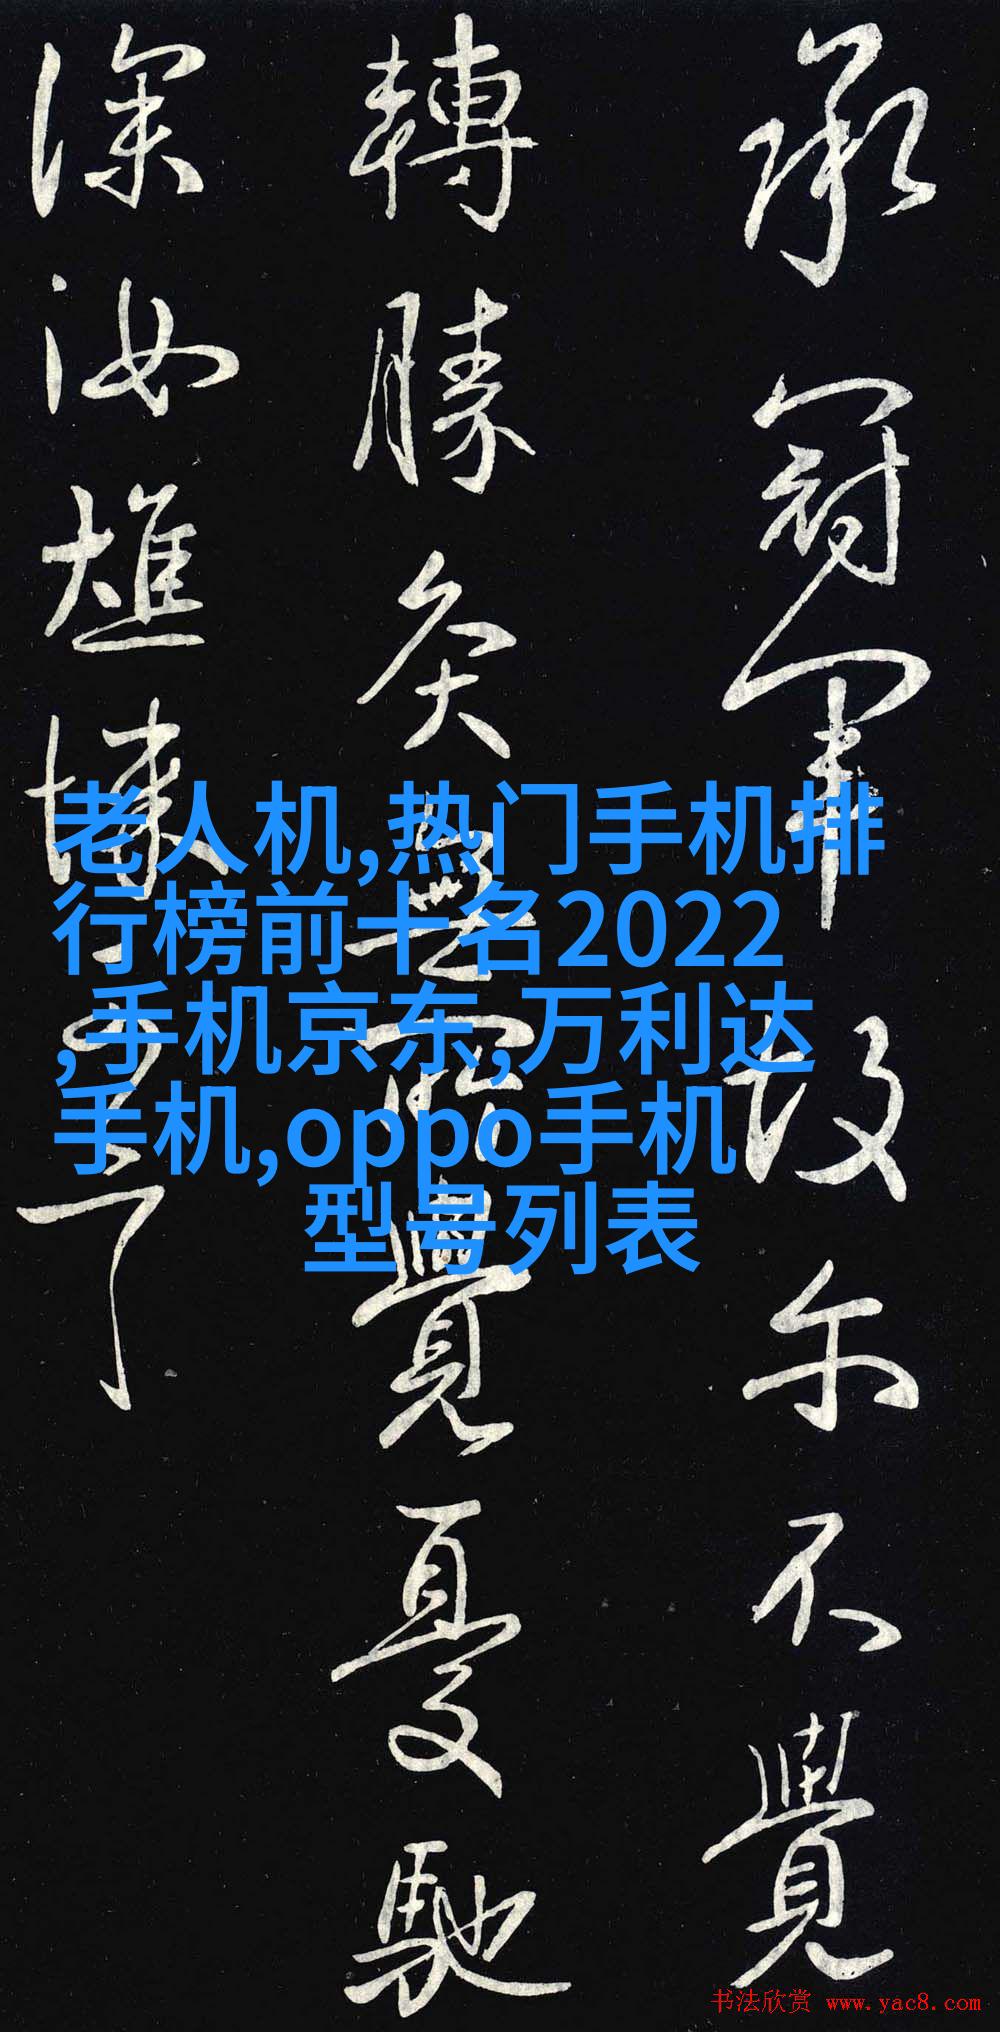 承冠軍故尓不覺
轉勝灸無
覺憂馳
深汝燋悚
了
老人机,热门手机排
行榜前十名2022
,手机京东,万利达
手机,oppo手机
型号列表
书法欣赏 www.yac8.com